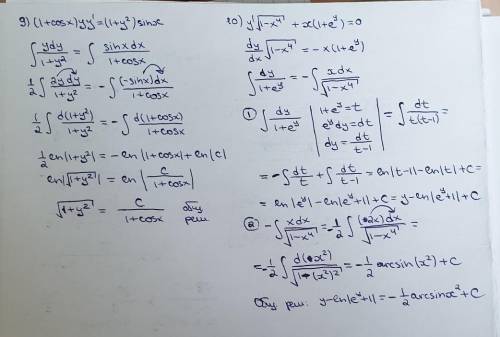 9) (1+cosx)yy' = (1+y²)sinx
∫ ydy/(1+y²) = ∫ sinxdx/(1+cosx)
1/2 ∫ 2ydy/(1+y²) = -∫ (-sinx)dx/(1+cosx)
1/2 ∫ d(1+y²)/(1+y²) = -∫ d(1+cosx)/(1+cosx)
1/2 ln|1+y²| = -ln|1+cosx|+ln|C|
ln|√(1+y²)| = ln|C/(1+cosx)|
√(1+y²) = C/(1+cosx) общ реш
10) y'√(1-x⁴) + x(1+e^y)=0
dy/dx √(1-x⁴) = -x(1+e^y)
∫ dy/(1+e^y) = -∫ xdx/√(1-x⁴)
① ∫ dy/(1+e^y) | 1+e^y=t
e^y dy=dt
dy = dt/(t-1) | = ∫ dt/(t(t-1)) =
= -∫ dt/t + ∫ dt/(t-1) = ln|t-1|-ln|t|+C=
= ln|e^y|-ln|e^y+1|+C=y-ln|e^y+1|+C
② -∫ xdx/√(1-x⁴) = -1/2 ∫ (2x)dx/√(1-x⁴) =
= -1/2 ∫ d(x²)/√(1-(x²)²) = -1/2 arcsin(x²)+C
Общ реш: y-ln|e^y+1| = -1/2 arcsinx²+C